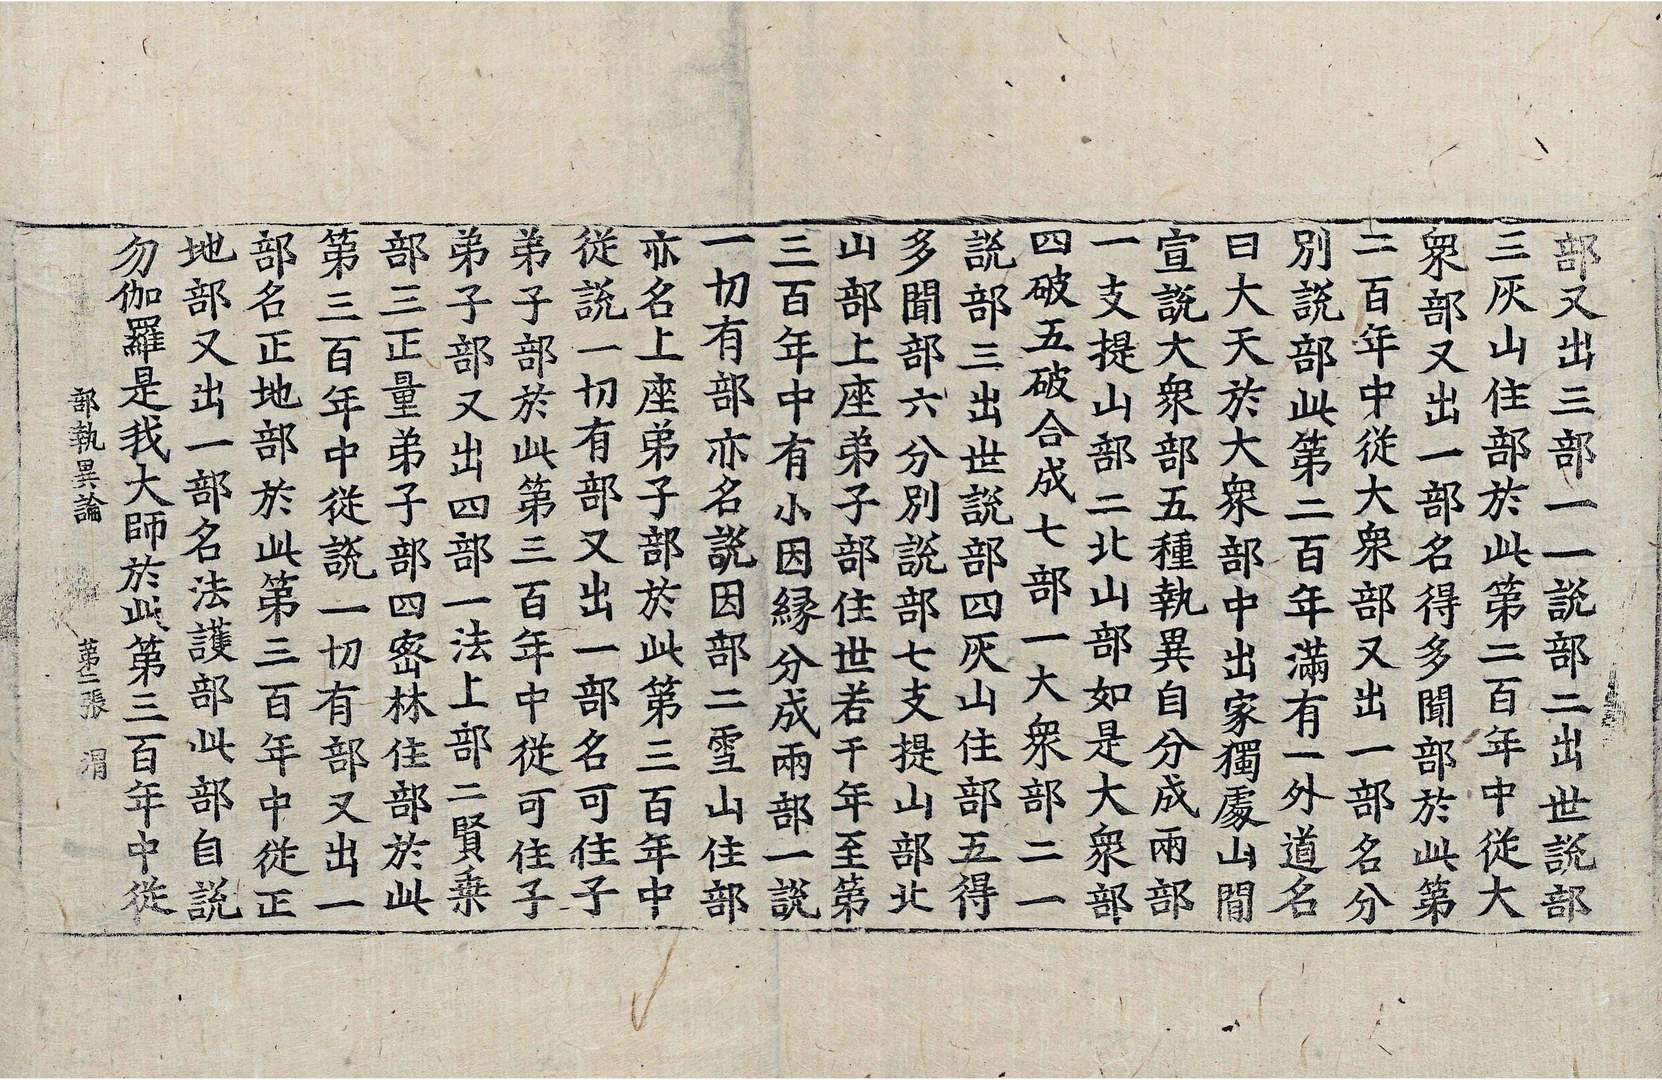 部又出三部一一說部二出世說部
三灰山住部於此第二百年中從大
衆部又出一部名得多聞部於此第
二百年中從大衆部又出一部名分
別說部此第二百年滿有一外道名
曰大天於大衆部中出家獨處山閒
宣說大衆部五種執異自分成兩部
一支提山部二北山部如是大衆部
四破五破合成七部一大衆部二一
說部三出世說部四灰山住部五得
多聞部六分別說部七支提山部北
山部上座弟子部住世若干年至第
三百年中有小因縁分成兩部一說
一切有部亦名說因部二雪山住部
亦名上座弟子部於此第三百年中
從說一切有部又出一部名可住子
弟子部於此第三百年中從可住子
弟子部又出四部一法上部二賢乗
部三正量弟子部四密林住部於此
第三百年中從說一切有部又出一
部名正地部於此第三百年中從正
地部又出一部名法護部此部自說
勿伽羅是我大師於此第三百年中從
部執異論 第二張 渭